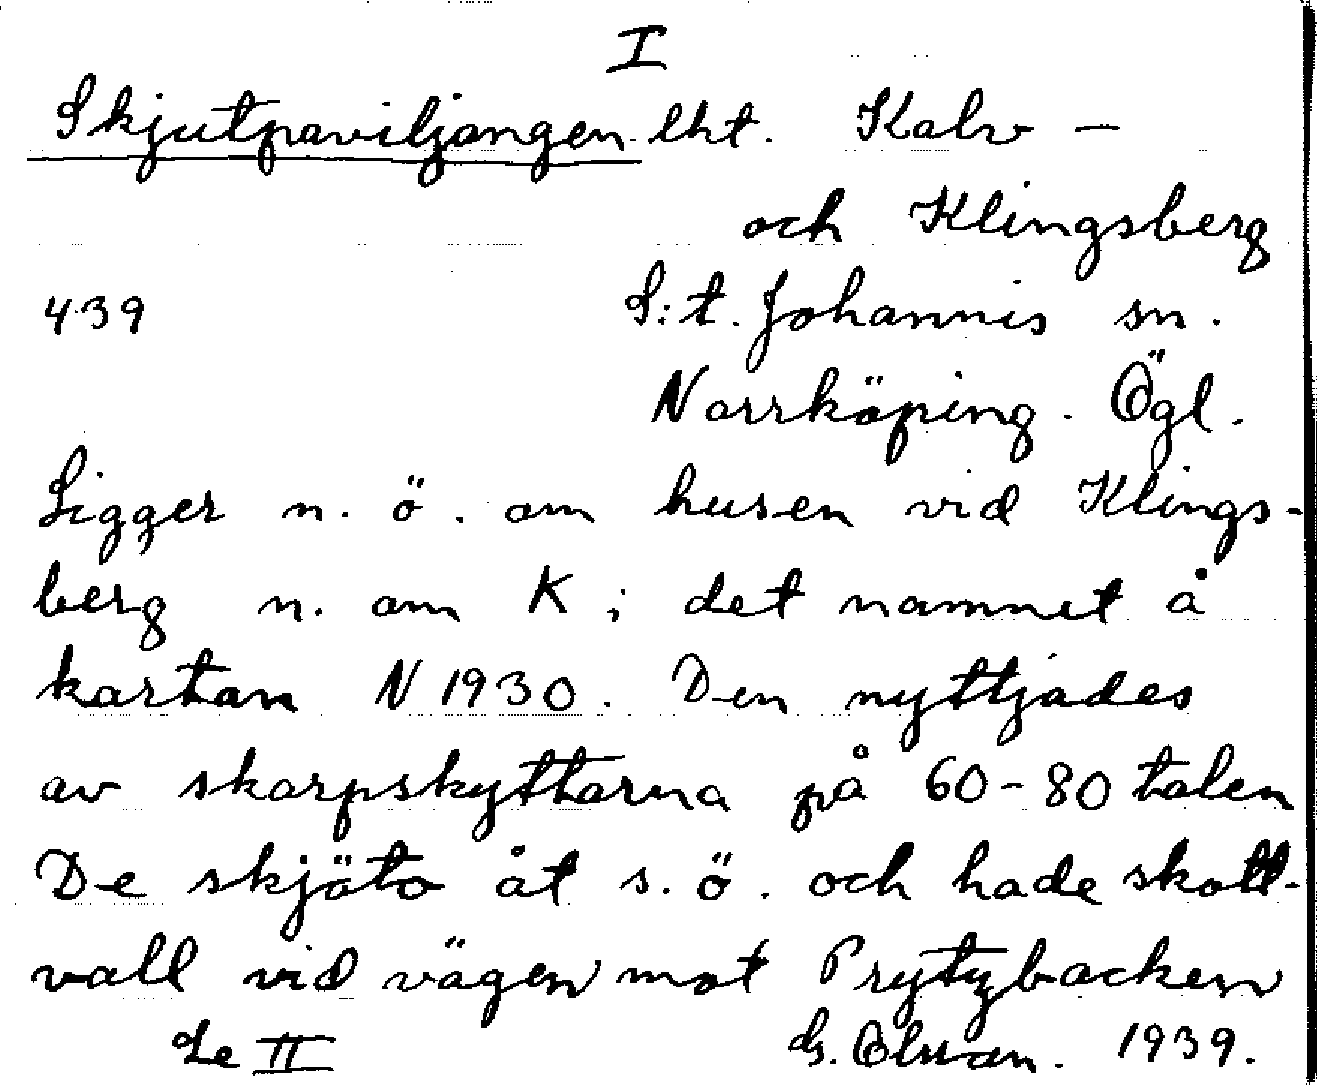 I
Skjutpaviljongen lht. Kalv-
och Klingsberg
439 S:t. Johannis sn.
Norrköping. Ögl.
Ligger n. ö. om husen vid Klings-
berg n. om K i det namnet å
kartan N 1930. Den nyttjades
av skarpskyttarna på 60-80 talen
De skjöto åt s. ö. och hade skott-
vall vid vägen mot Prytzbacken
Se II G. 1939.